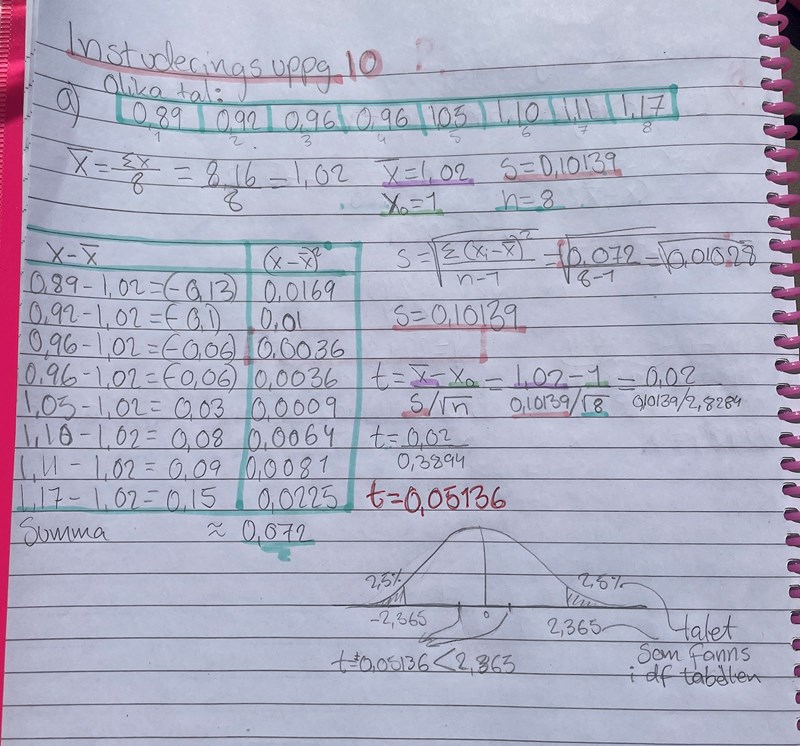 Instuderingsuppg 10
Olika tal:
a) 0,89 0,92 0,96 0,96 103 1,10 1,11 1,17
1 2 3 4 5 6 7 8
X̄ = Σx/8 = 8,16/8 = 1,02 X̄=1,02 S=0,10139
X₀=1 n=8
X-X̄ (X-X̄)²
0,89-1,02=(-0,13) 0,0169
0,92-1,02=(-0,1) 0,01
0,96-1,02=(-0,06) 0,0036
0,96-1,02=(-0,06) 0,0036
1,05-1,02= 0,03 0,0009
1,10-1,02= 0,08 0,0064
1,11-1,02= 0,09 0,0081
1,17-1,02= 0,15 0,0225
Summa ≈ 0,072
S=√(Σ(xᵢ-x̄)²/n-1) = √(0,072/8-1) = √0,01028
S=0,10139
t = X̄-X₀/S/√n = 1,02-1/0,10139/√8 = 0,02/0,10139/2,8284
t=0,02/0,3894
t=0,05136
2,5% 2,5%
-2,365 0 2,365 talet
Som fanns
i df tabellen
t=±0,05136<2,365